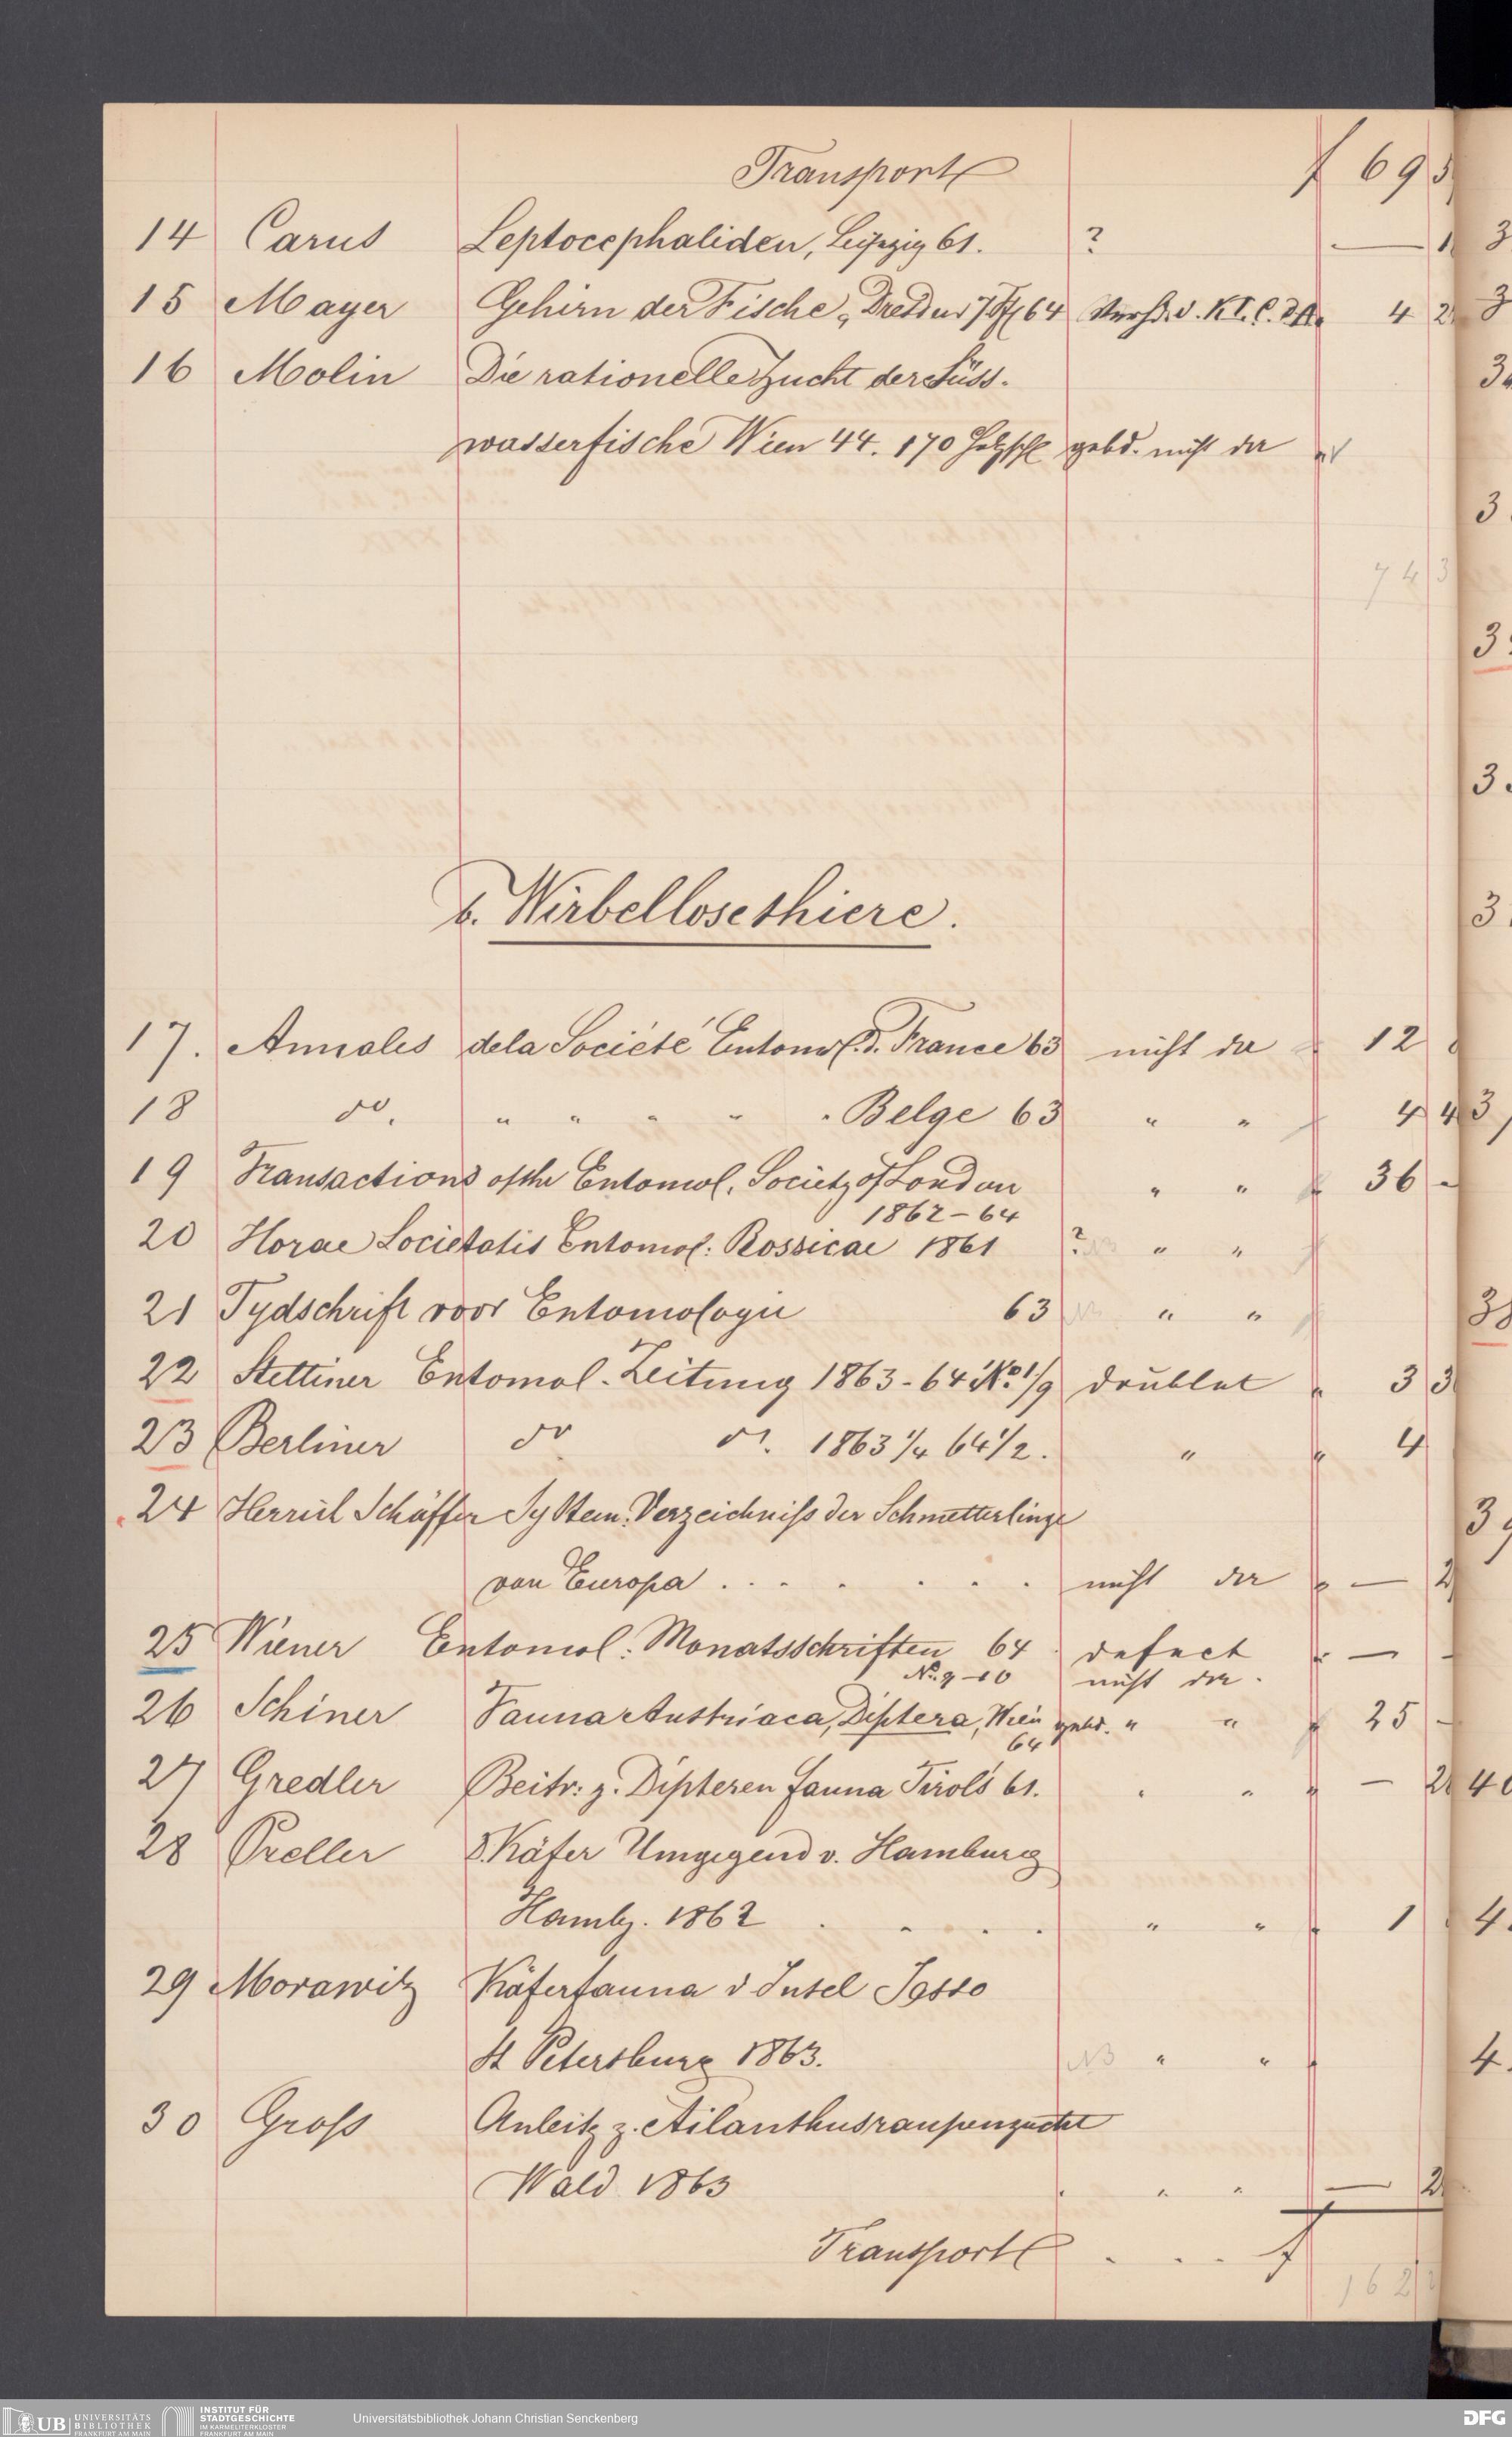 Transport f 695
14 Carus Leptocephaliden, Leipzig 61. ? — 1
15 Mayer Gehirn der Fische, Dresden 64 4 2
16 Molin Die rationelle Zucht der Süss-
wasserfische Wien 44. 170 Holzsch gebd. nicht da
7 4 3
b. Wirbellosethiere.
17. Annales de la Société Entomol. d. France 63 nicht da 12
18 do. " " " " " Belge 63 " " 4 4
19 Transactions of the Entomol. Society of London " " 36 -
1862-64
20 Horae Societatis Entomol: Rossicae 1861 ? NB " "
21 Tydschrift voor Entomologie 63 NB " "
22 Stettiner Entomol. Zeitung 1863-64 No. 1/9 doublet " 3 3
23 Berliner do do. 1863 1/4 64 1/2. " " 4
24 Herrich Schäffer System. Verzeichniss der Schmetterlinge
von Europa . . . . . . . nicht da " — 2
25 Wiener Entomol: Monatsschriften 64 defect " —
No. 9-10 nicht da.
26 Schiner Fauna Austriaca, Diptera, Wien gebd. " " 25 -
64
27 Gredler Beitr: z. Dipteren fauna Tirols 61. " " " — 2
28 Preller D. Käfer Umgegend v. Hamburg
Hambg. 1862 . . . . " " " 1
29 Morawitz Käferfauna d Insel Jesso
St Petersburg 1863. NB " "
30 Gross Anleitg z. Ailanthusraupenzucht
Wald 1863 " " — 2
Transport . . . f
1 6 2